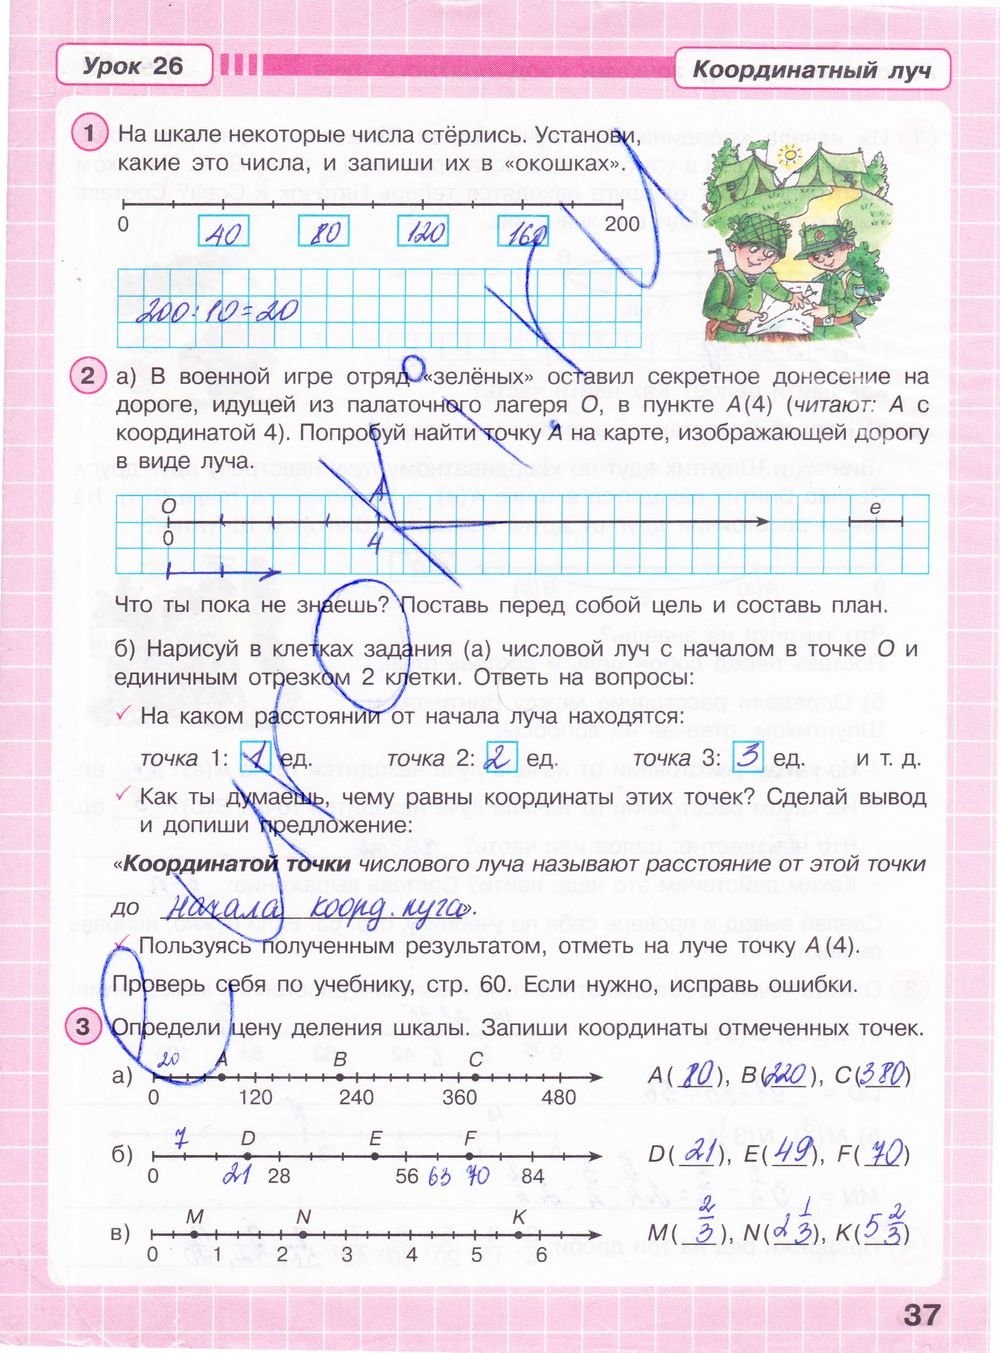 Урок 26
Координатный луч
1 На шкале некоторые числа стёрлись. Установи,
какие это числа, и запиши их в «окошках».
0 40 80 120 160 200
200:10=20
2 а) В военной игре отряд «зелёных» оставил секретное донесение на
дороге, идущей из палаточного лагеря O, в пункте A(4) (читают: A с
координатой 4). Попробуй найти точку A на карте, изображающей дорогу
в виде луча.
O A e
0 4
Что ты пока не знаешь? Поставь перед собой цель и составь план.
б) Нарисуй в клетках задания (а) числовой луч с началом в точке O и
единичным отрезком 2 клетки. Ответь на вопросы:
✓ На каком расстоянии от начала луча находятся:
точка 1: 1 ед. точка 2: 2 ед. точка 3: 3 ед. и т. д.
✓ Как ты думаешь, чему равны координаты этих точек? Сделай вывод
и допиши предложение:
«Координатой точки числового луча называют расстояние от этой точки
до начала коорд. луча».
✓ Пользуясь полученным результатом, отметь на луче точку A(4).
Проверь себя по учебнику, стр. 60. Если нужно, исправь ошибки.
3 Определи цену деления шкалы. Запиши координаты отмеченных точек.
20 A B C
а) A(80), B(220), C(380)
0 120 240 360 480
7 D E F
б) D(21), E(49), F(70)
0 21 28 56 63 70 84
M N K
в) M(2/3), N(2 1/3), K(5 2/3)
0 1 2 3 4 5 6
37